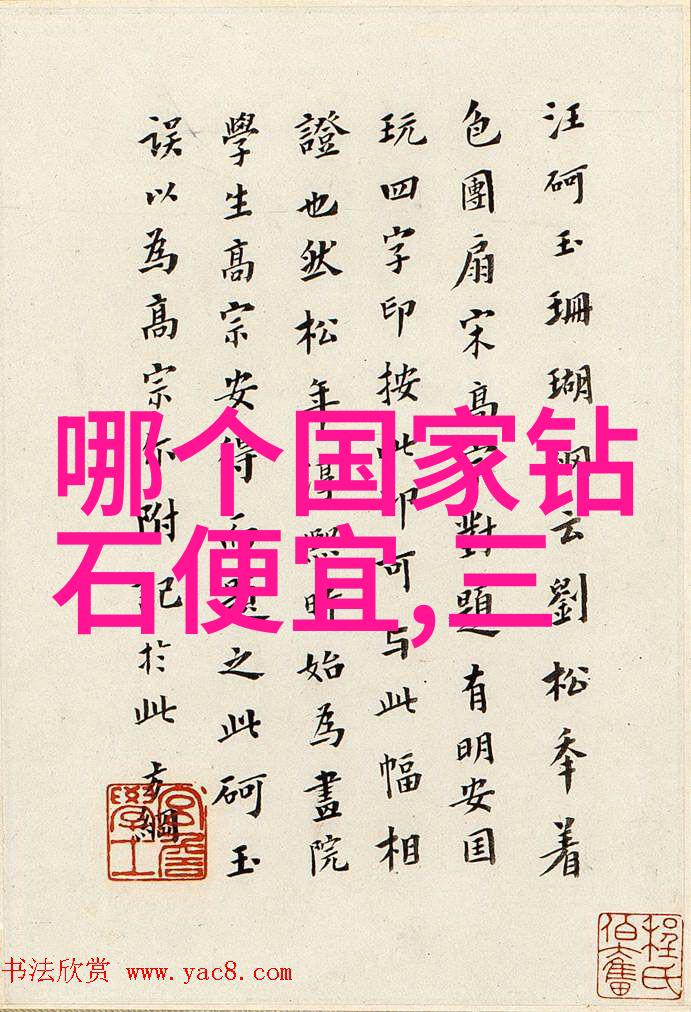 汪砢玉珊瑚网云劉松年着
色團扇宋高宗對題有明安国
玩四字印按此印可与此幅相
證也然松年淳熙時始為畫院
學生高宗安得而題之此砢玉
誤以為高宗尔附記於此方綱
哪个国家钻
石便宜,三
书法欣赏 www.yac8.com
程氏
伯奮